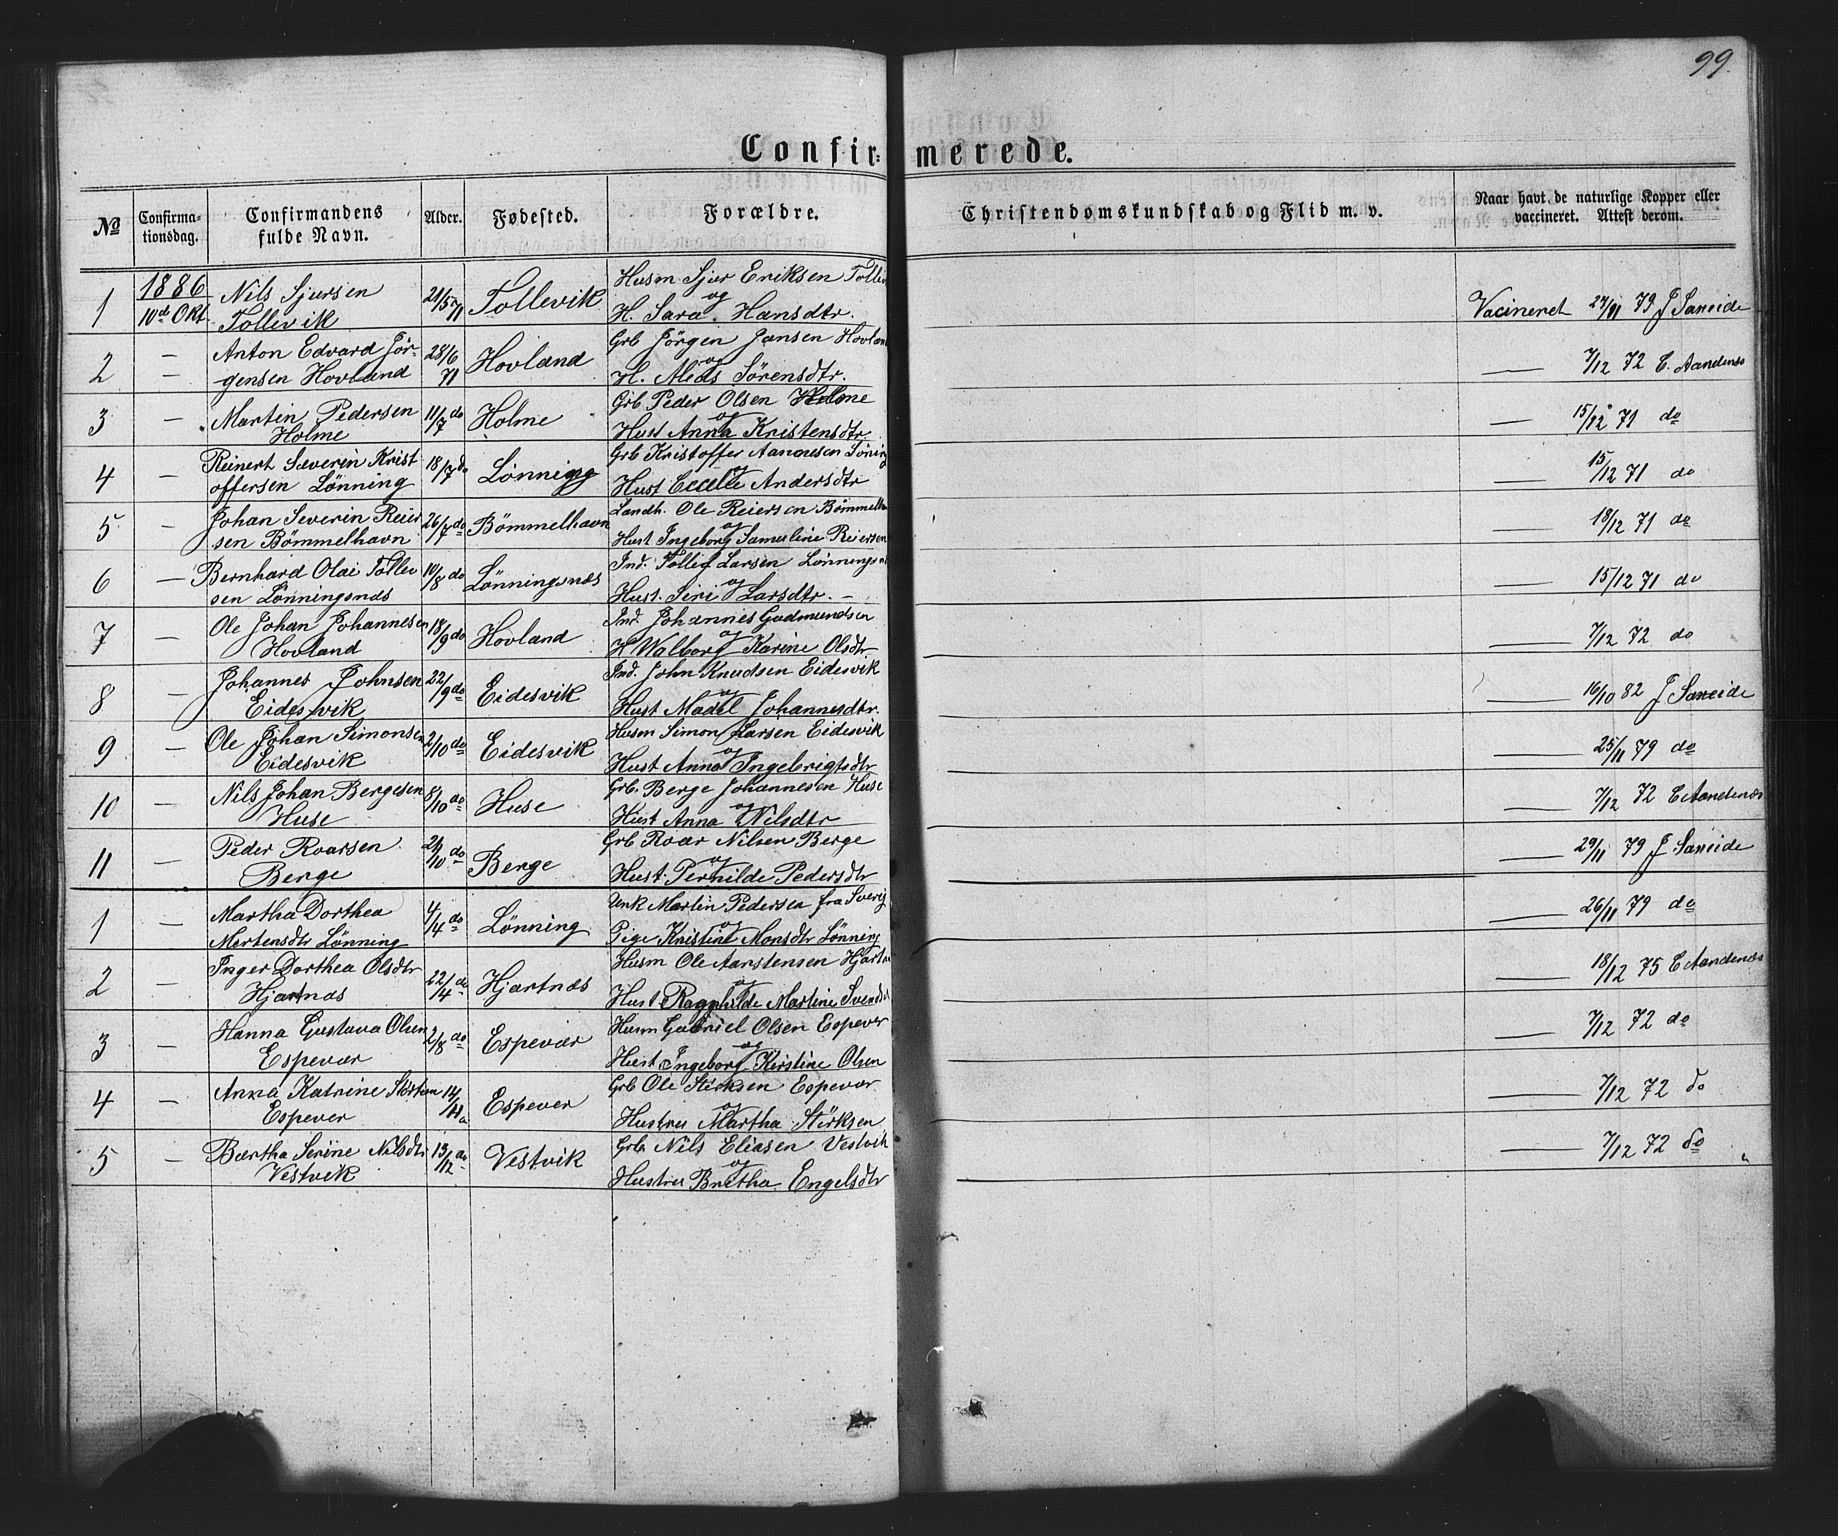 99.
Confirmerede.
No Confirmationsdag. Confirmandens fulde Navn. Alder. Fødested. Forældre. Christendomskundskab og Flid m. v. Naar havt de naturlige Kopper eller vaccineret. Attest derom.
1886
1 10de Okt. Nils Sjursen Tollevik 21/5 71 Tollevik Husm Sjur Eriksen og H. Sara Hansdtr. Vacineret 79 J Sancide
2 — Anton Edvard Jörgensen Hovland 28/6 71 Hovland Grb Jörgen Jansen og H. Sörensdtr. — 7/12 72 E. Aandenes
3 — Martin Pedersen Holme 11/7 do Holme Grb Peder Olsen Holme og Hust Anna Kristensdtr — 15/12 71 do
4 — Reinert Sæverin Kristoffersen Lönning 18/7 do Lönning Grb Kristoffer og Hust Andersdtr — 15/12 71 do
5 — Johan Severin Reiersen Bömmelhavn 26/7 do Bömmelhavn Landh. Ole Reiersen og Hust Ingeborg Samueline Reiersen — 18/12 71 do
6 — Bernhard Olai Tollevsen Lönningsnæs 10/8 do Lönningsnæs Ind. Larsen og Hust. Siri Larsdtr. — 15/12 71 do
7 — Ole Johan Johannesen Hovland 18/9 do Hovland Ind. Johannes Gudmundsen og H Walborg Karine Olsdtr — 7/12 72 do
8 — Johannes Johnsen Eidesvik 22/9 do Eidesvik Ind. John Knudsen Eidesvik og Hust Madel Johannesdtr. — 16/10 82 J Sancide
9 — Ole Johan Simonsen Eidesvik 2/10 do Eidesvik Husm Simon Larsen Eidesvik og Hust Anna Ingebrigtsdtr — 25/11 79 do
10 — Nils Johan Bergesen Huse 8/10 do Huse Grb. Berge Johannesen Huse og Hust Anna Nilsdtr — 7/12 72 E Aandenæs
11 — Peder Roarsen Berge 21/10 do Berge Grb Roar Nilsen Berge og Hust. Pernilde Pedersdtr — 29/11 79 J Sancide
1 — Martha Dorthea Mertensdtr Lönning 4/4 do Lönning Unk Martin Pedersen fra Sverig og Pige Kristine Monsdtr Lönning — 26/11 79 do
2 — Inger Dorthea Olsdtr Hjartnæs 22/4 do Hjartnæs Husm Ole Aanstensen og Hust Ragnhilde Martine — 18/12 75 E Aandenæs
3 — Hanna Gustava Olsen Espevær 2/8 do Espevær Husm Gabriel Olsen Espevær og Hust Ingeborg Kirstine Olsen — 7/12 72 do
4 — Anna Katrine Störksen Espever 14/11 Espever Grb Ole Störksen Espevær og Hustru Martha Störksen — 7/12 72 do
5 — Bertha Serine Nilsdtr Vestvik 13/12 do Vestvik Grb. Nils Eliasen Vestvik og Hustru Britha Engelsdtr — 7/12 72 do